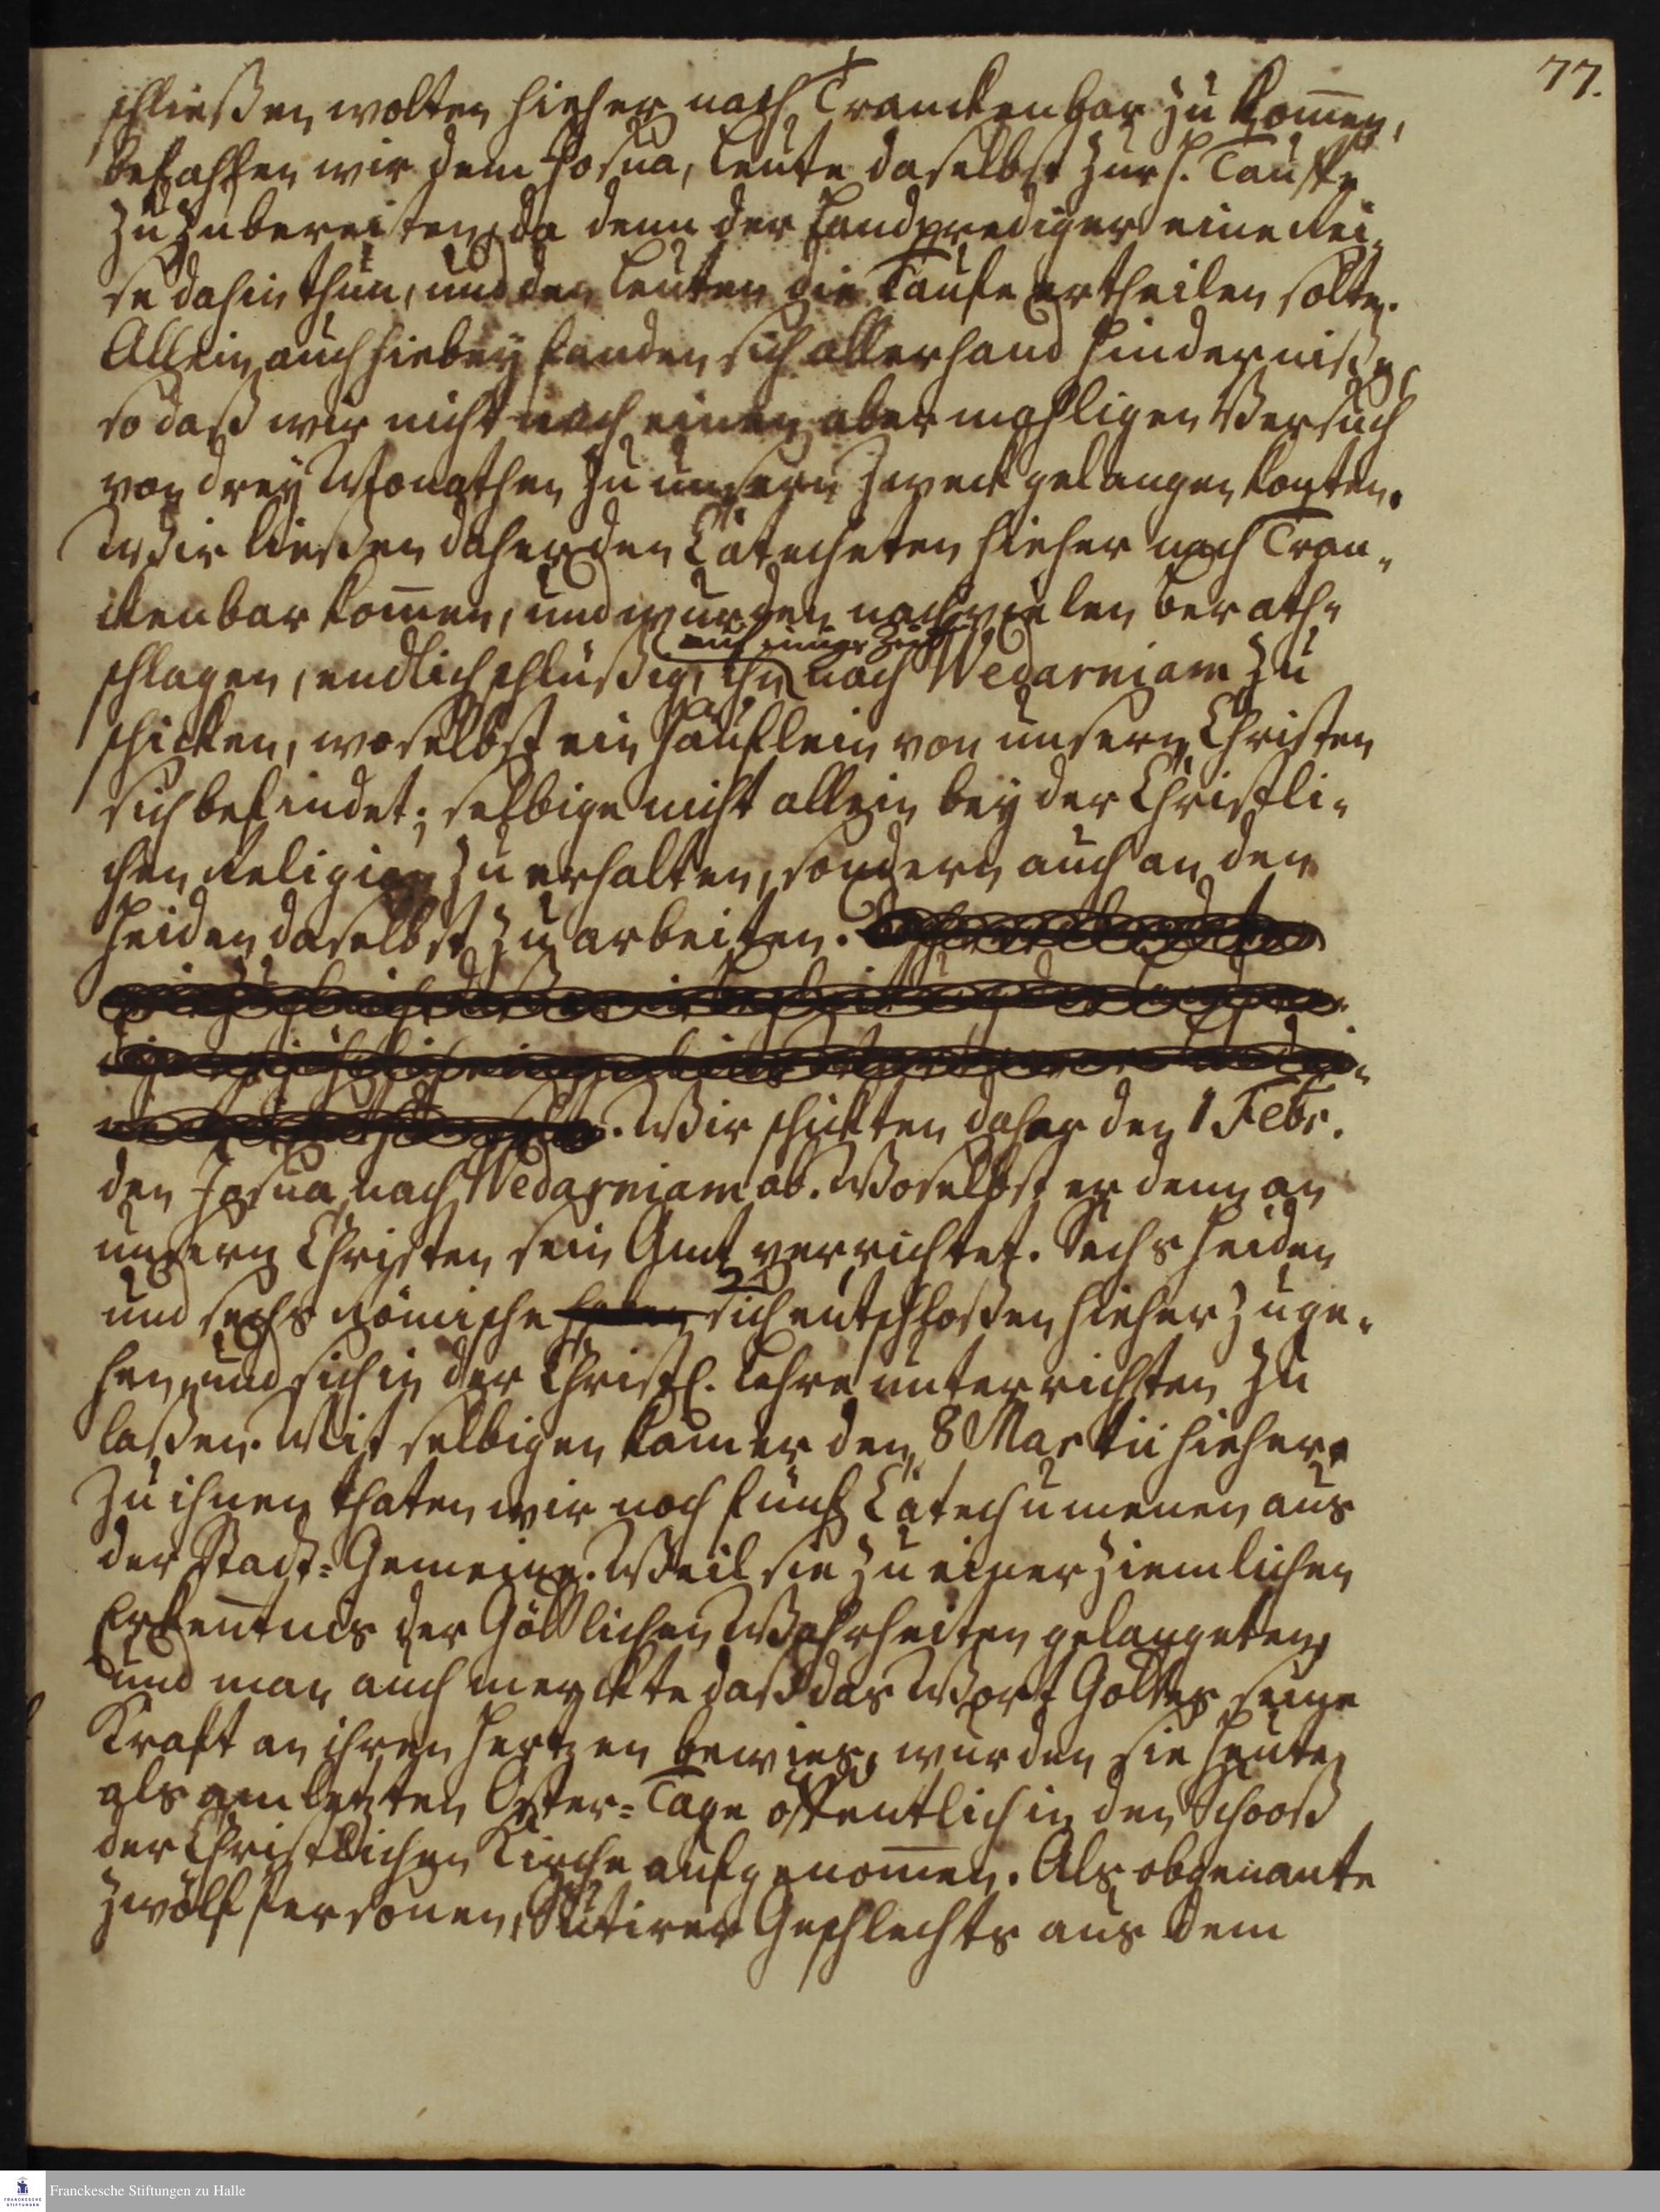 77.
schließen wolten hieher nach Tranckenbar zu kom̅en,
befahlen wir dem Josua, Leute daselbst zur h. Tauffe
zuzubereiten, da denn der Landprediger eine Rei-
se dahin thun, und den Leuten die Taufe ertheilen solte.
Allein auch hiebey fanden sich allerhand Hinderniße,
so daß wir nicht nach einen abermahligen Versuch
von drey Monathen zu unsern Zweck gelangen konten.
Wir ließen daher den Catecheten hieher nach Tran-
ckenbar kom̅en, und wurden nach vielen berath-
auf einige Zeit
schlagen, endlich schlüßig, ihn nach Wedarniam zu
schicken, woselbst ein Häuflein von unsern Christen
sich befindet; selbige nicht allein bey der Christli-
chen Religion zu erhalten, sondern auch an den
Heiden daselbst zu arbeiten.
Wir schickten daher den 1 Febr.
den Josua nach Wedarniam ab. Woselbst er denn an
unsern Christen sein Amt verrichtet. Sechs Heiden
und sechs Römische haben sich entschloßen hieher zu ge-
hen, und sich in der Christl. Lehre unterrichten zu
laßen. Mit selbigen kam er den 8 Martii hieher.
Zu ihnen thaten wir noch fünf Catechumenen aus
der Stadt-Gemeine. Weil sie zu einer ziemlichen
Erkentnis der Göttlichen Wahrheiten gelangeten,
und man auch merckte daß das Wort Gottes seine
Kraft an ihren Hertzen bewies, wurden sie heute
als am letzten Oster-Tage öffentlich in den Schooß
der Christlichen Kirche aufgenom̅en. Als obgenante
zwölf Personen, Sutirer Geschlechts aus dem
Franckesche Stiftungen zu Halle
FRANCKESCHE
STIFTUNGEN